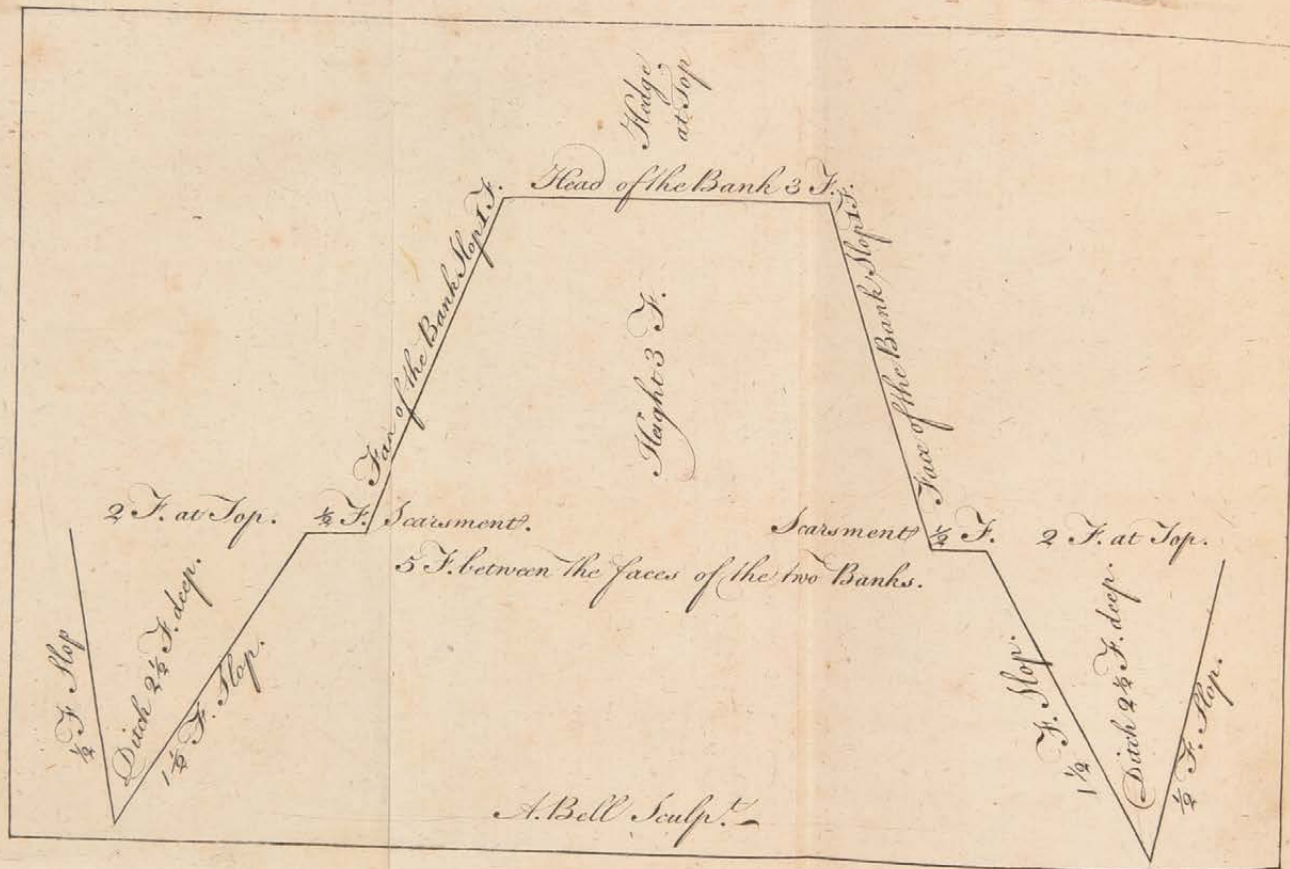 Hedge
at Top
Head of the Bank 3 F.
Fac of the Bank Slop 1 F.
Face of the Bank Slop 1 F.
Height 3 F.
2 F. at Top.
½ F.
Scarsment.
Scarsment
½ F.
2 F. at Top.
5 F. between the faces of the two Banks.
½ F Slop
Ditch 2½ F. deep.
1½ F. Slop.
1½ F. Slop.
Ditch 2½ F. deep.
½ F. Slop.
A. Bell Sculp.t